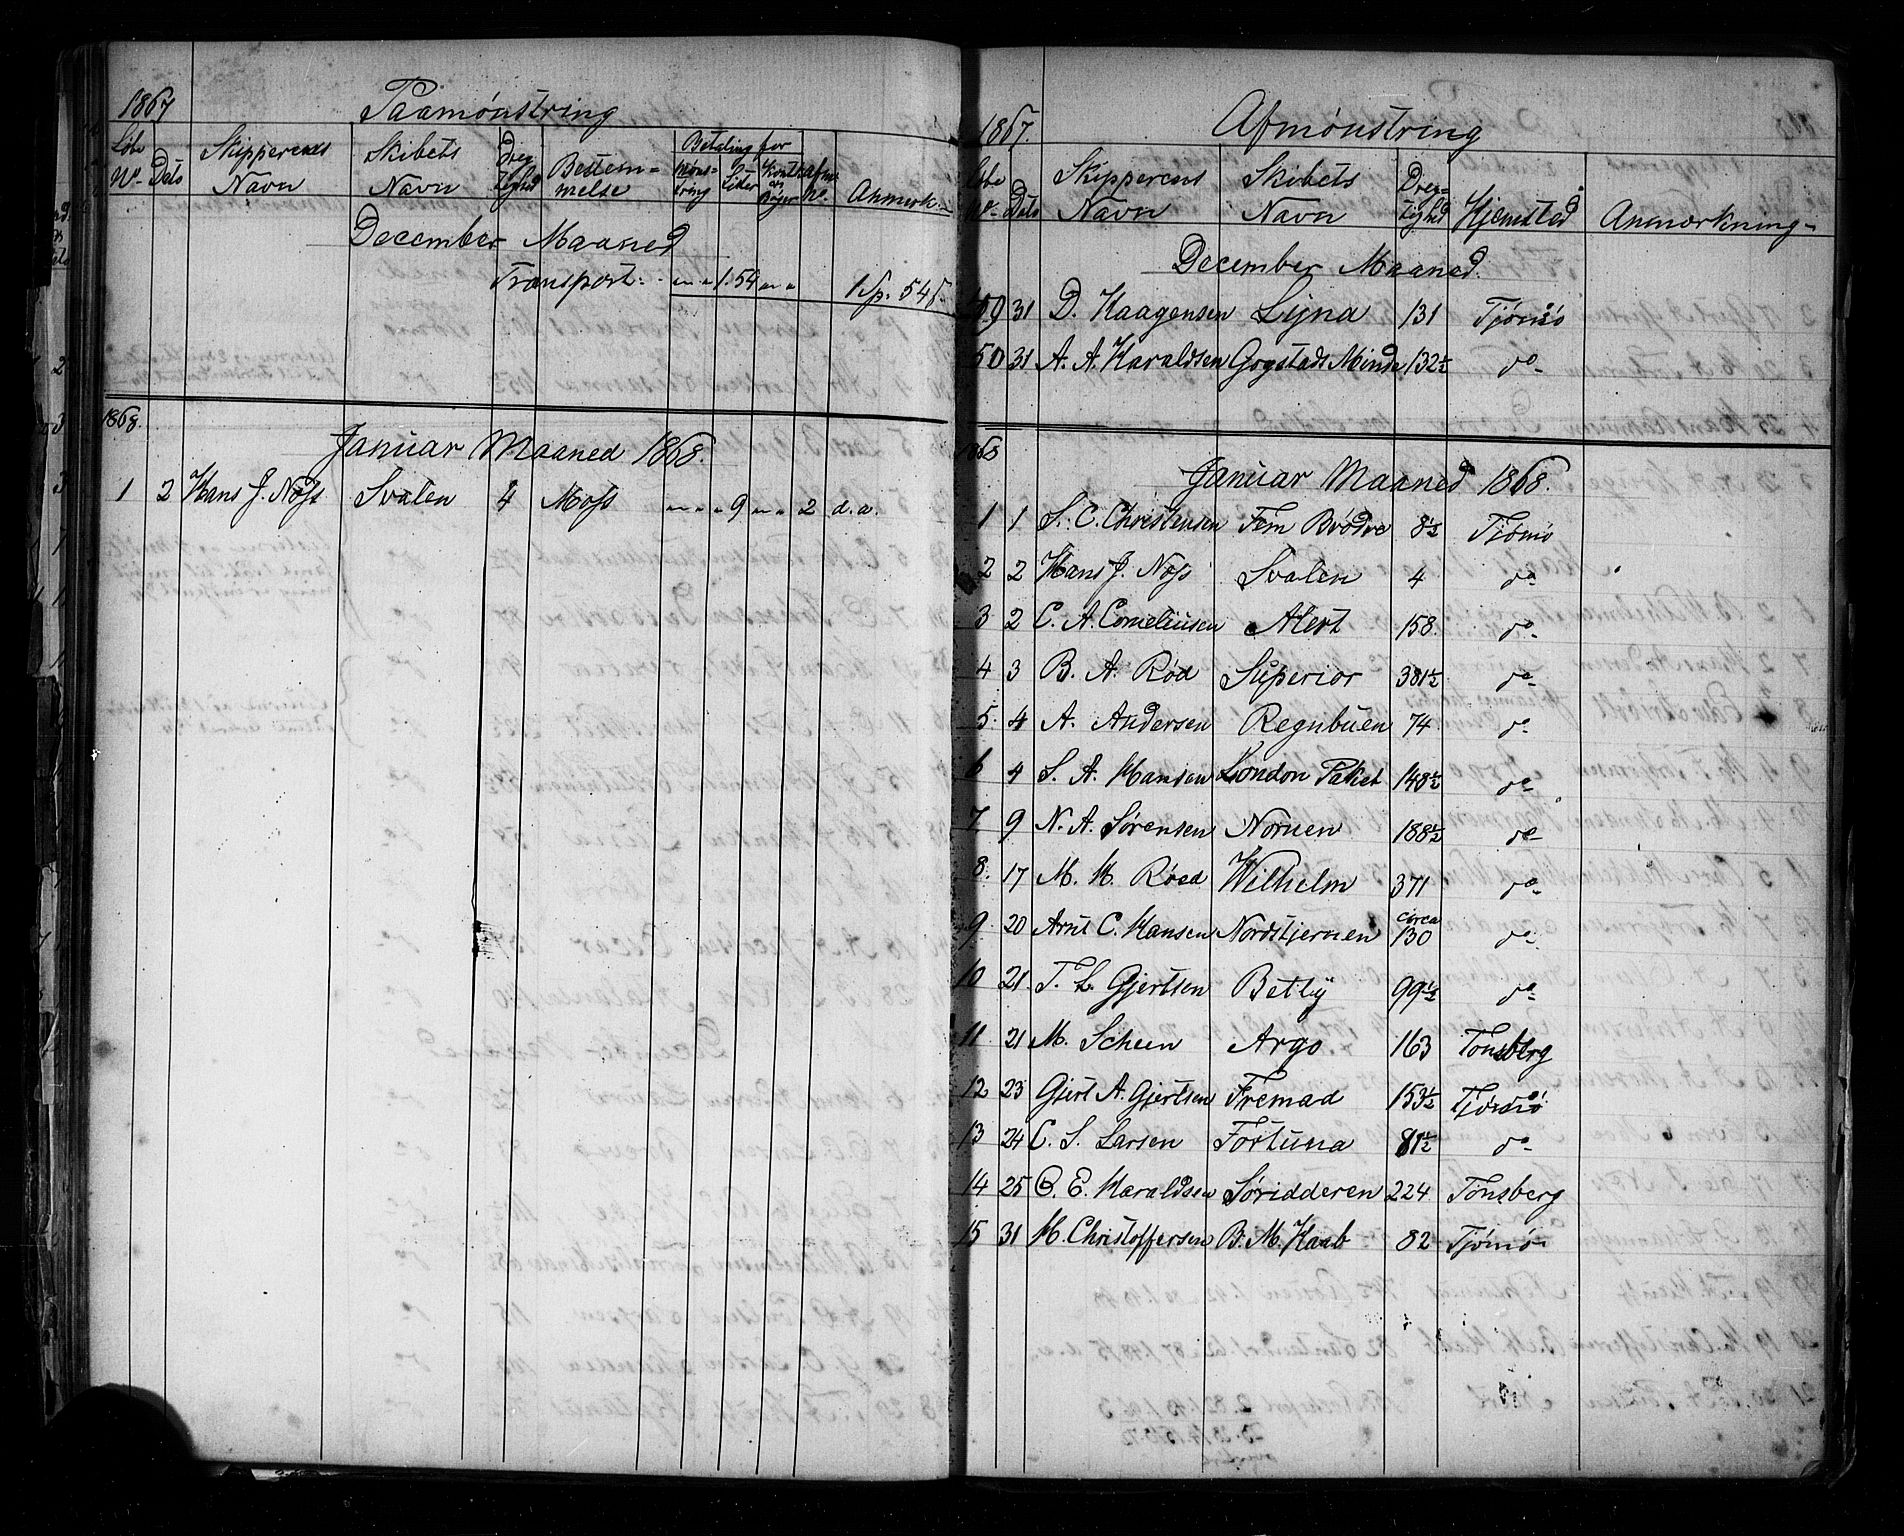 1867 Paamønstring
Løbe No. Dato Skipperens Navn Skibets Navn Dregtighd Bestemmelse Betaling for Mønstring Lider Anmærk.
December Maaned
Transport 1.54 1 Sp. 54
1868.
Januar Maaned 1868.
1 2 Hans J. Nøss Svalen 4 Moss 9 2 d.a.
1867. Afmønstring
Løbe No. Dato Skipperens Navn Skibets Navn Dregtighd Hjemsted Anmærkning
December Maaned.
31 D. Haagensen Lyna 131 Tjømø
50 31 A. A. Haraldsen Gogstads Minde 132½ do
1868
Januar Maaned 1868.
1 1 S. C. Christensen Fem Brødre 8½ Tjømø
2 2 Hans J. Nøss Svalen 4 do
3 2 C. A. Corneliusen Alert 158 do
4 3 B. A. Rød Superior 381½ do
5 4 A. Andersen Regnbuen 74 do
6 4 S. A. Hansen London Paket 148½ do
7 9 N. A. Sørensen Nornen 188½ do
8. 17 M. M. Røed Wilhelm 371 do
9 20 Arnt C. Hansen Nordstjernen circa 130 do
10 21 T. L. Gjertsen Betly 99½ do
11 21 M. Scheen Argo 163 Tønsberg
12 23 Gjert A. Gjertsen Fremad 153½ Tjømø
13 24 C. S. Larsen Fortuna 81½ do
14 25 C. E. Haraldsen Søridderen 224 Tønsberg
15 31 H. Christoffersen B. M. Kaab 82 Tjømø